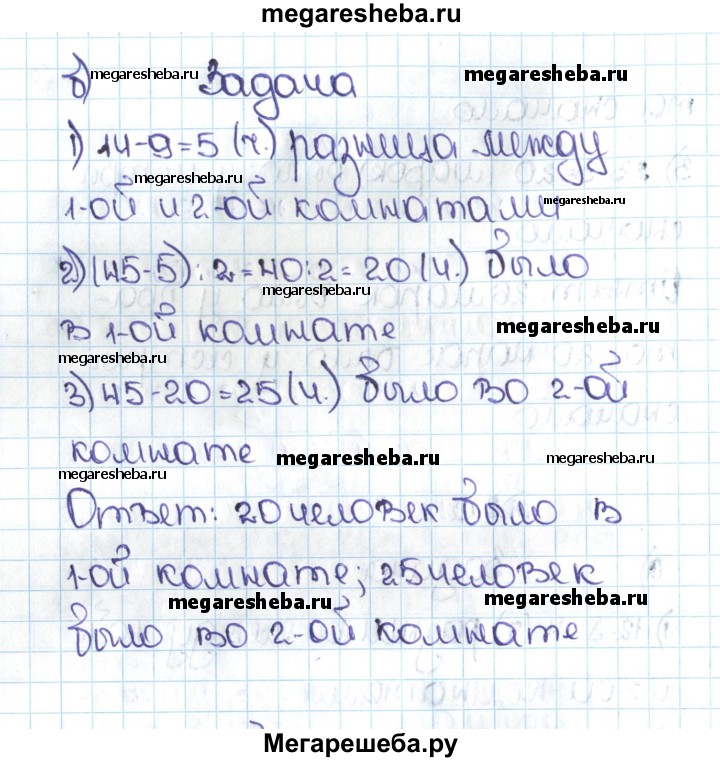 megaresheba.ru
б) megaresheba.ru Задача megaresheba.ru
1) 14-9=5 (ч.) разница между
megaresheba.ru megaresheba.ru
1-ой и 2-ой комнатами
2) (45-5):2=40:2=20 (ч.) было
megaresheba.ru
в 1-ой комнате megaresheba.ru
megaresheba.ru
3) 45-20=25 (ч.) было во 2-ой
комнате megaresheba.ru megaresheba.ru
megaresheba.ru
Ответ: 20 человек было в
1-ой комнате; 25 человек
megaresheba.ru megaresheba.ru
было во 2-ой комнате
Мегарешеба.ру